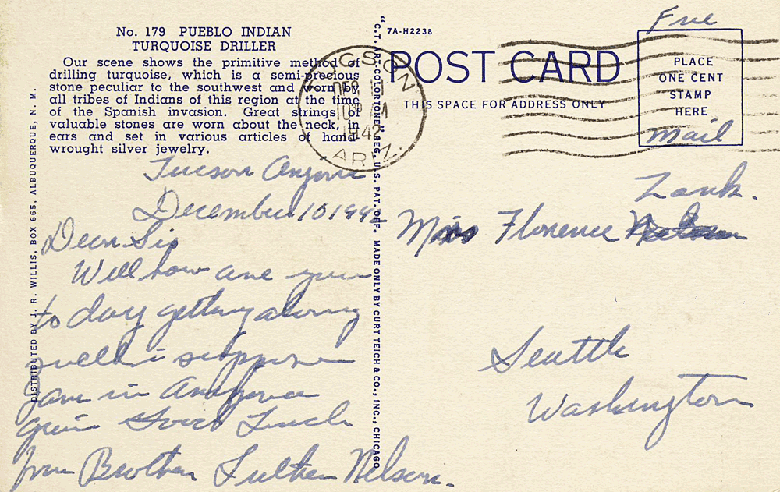 No. 179 PUEBLO INDIAN
TURQUOISE DRILLER
Our scene shows the primitive method of
drilling turquoise, which is a semi-precious
stone peculiar to the southwest and worn by
all tribes of Indians of this region at the time
of the Spanish invasion. Great strings of
valuable stones are worn about the neck, in
ears and set in various articles of hand
wrought silver jewelry.
Tucson
December 10 194
Dear Sis
Well how are you
to day getting along
well i suppose
in
Good Luck
from Brother Luther Nelson.
DISTRIBUTED BY J. R. WILLIS, BOX 665, ALBUQUERQUE, N. M.
"C.T. ART-COLORTONE" REG. U.S. PAT. OFF. MADE ONLY BY CURT TEICH & CO., INC., CHICAGO
7A-H2238
POST CARD
THIS SPACE FOR ADDRESS ONLY
TUCSON
DEC
1942
ARIZ.
Free
PLACE
ONE CENT
STAMP
HERE
Mail
Zank.
Florence
Seattle
Washington